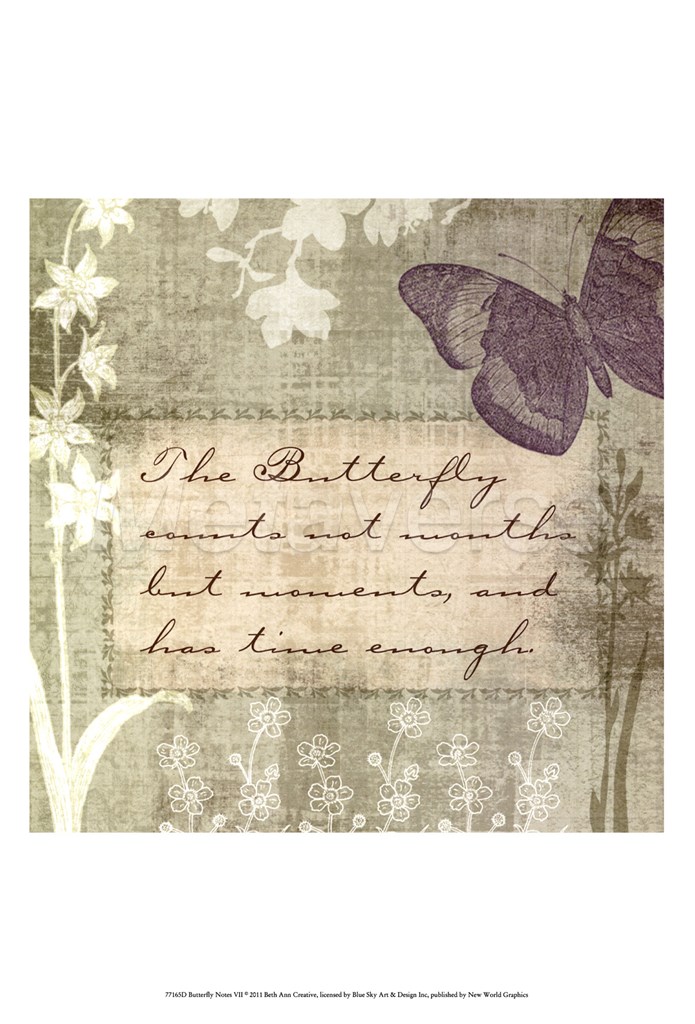 The Butterfly
counts not months
but moments, and
has time enough.
Metaverse
77165D Butterfly Notes VII © 2011 Beth Ann Creative, licensed by Blue Sky Art & Design Inc, published by New World Graphics